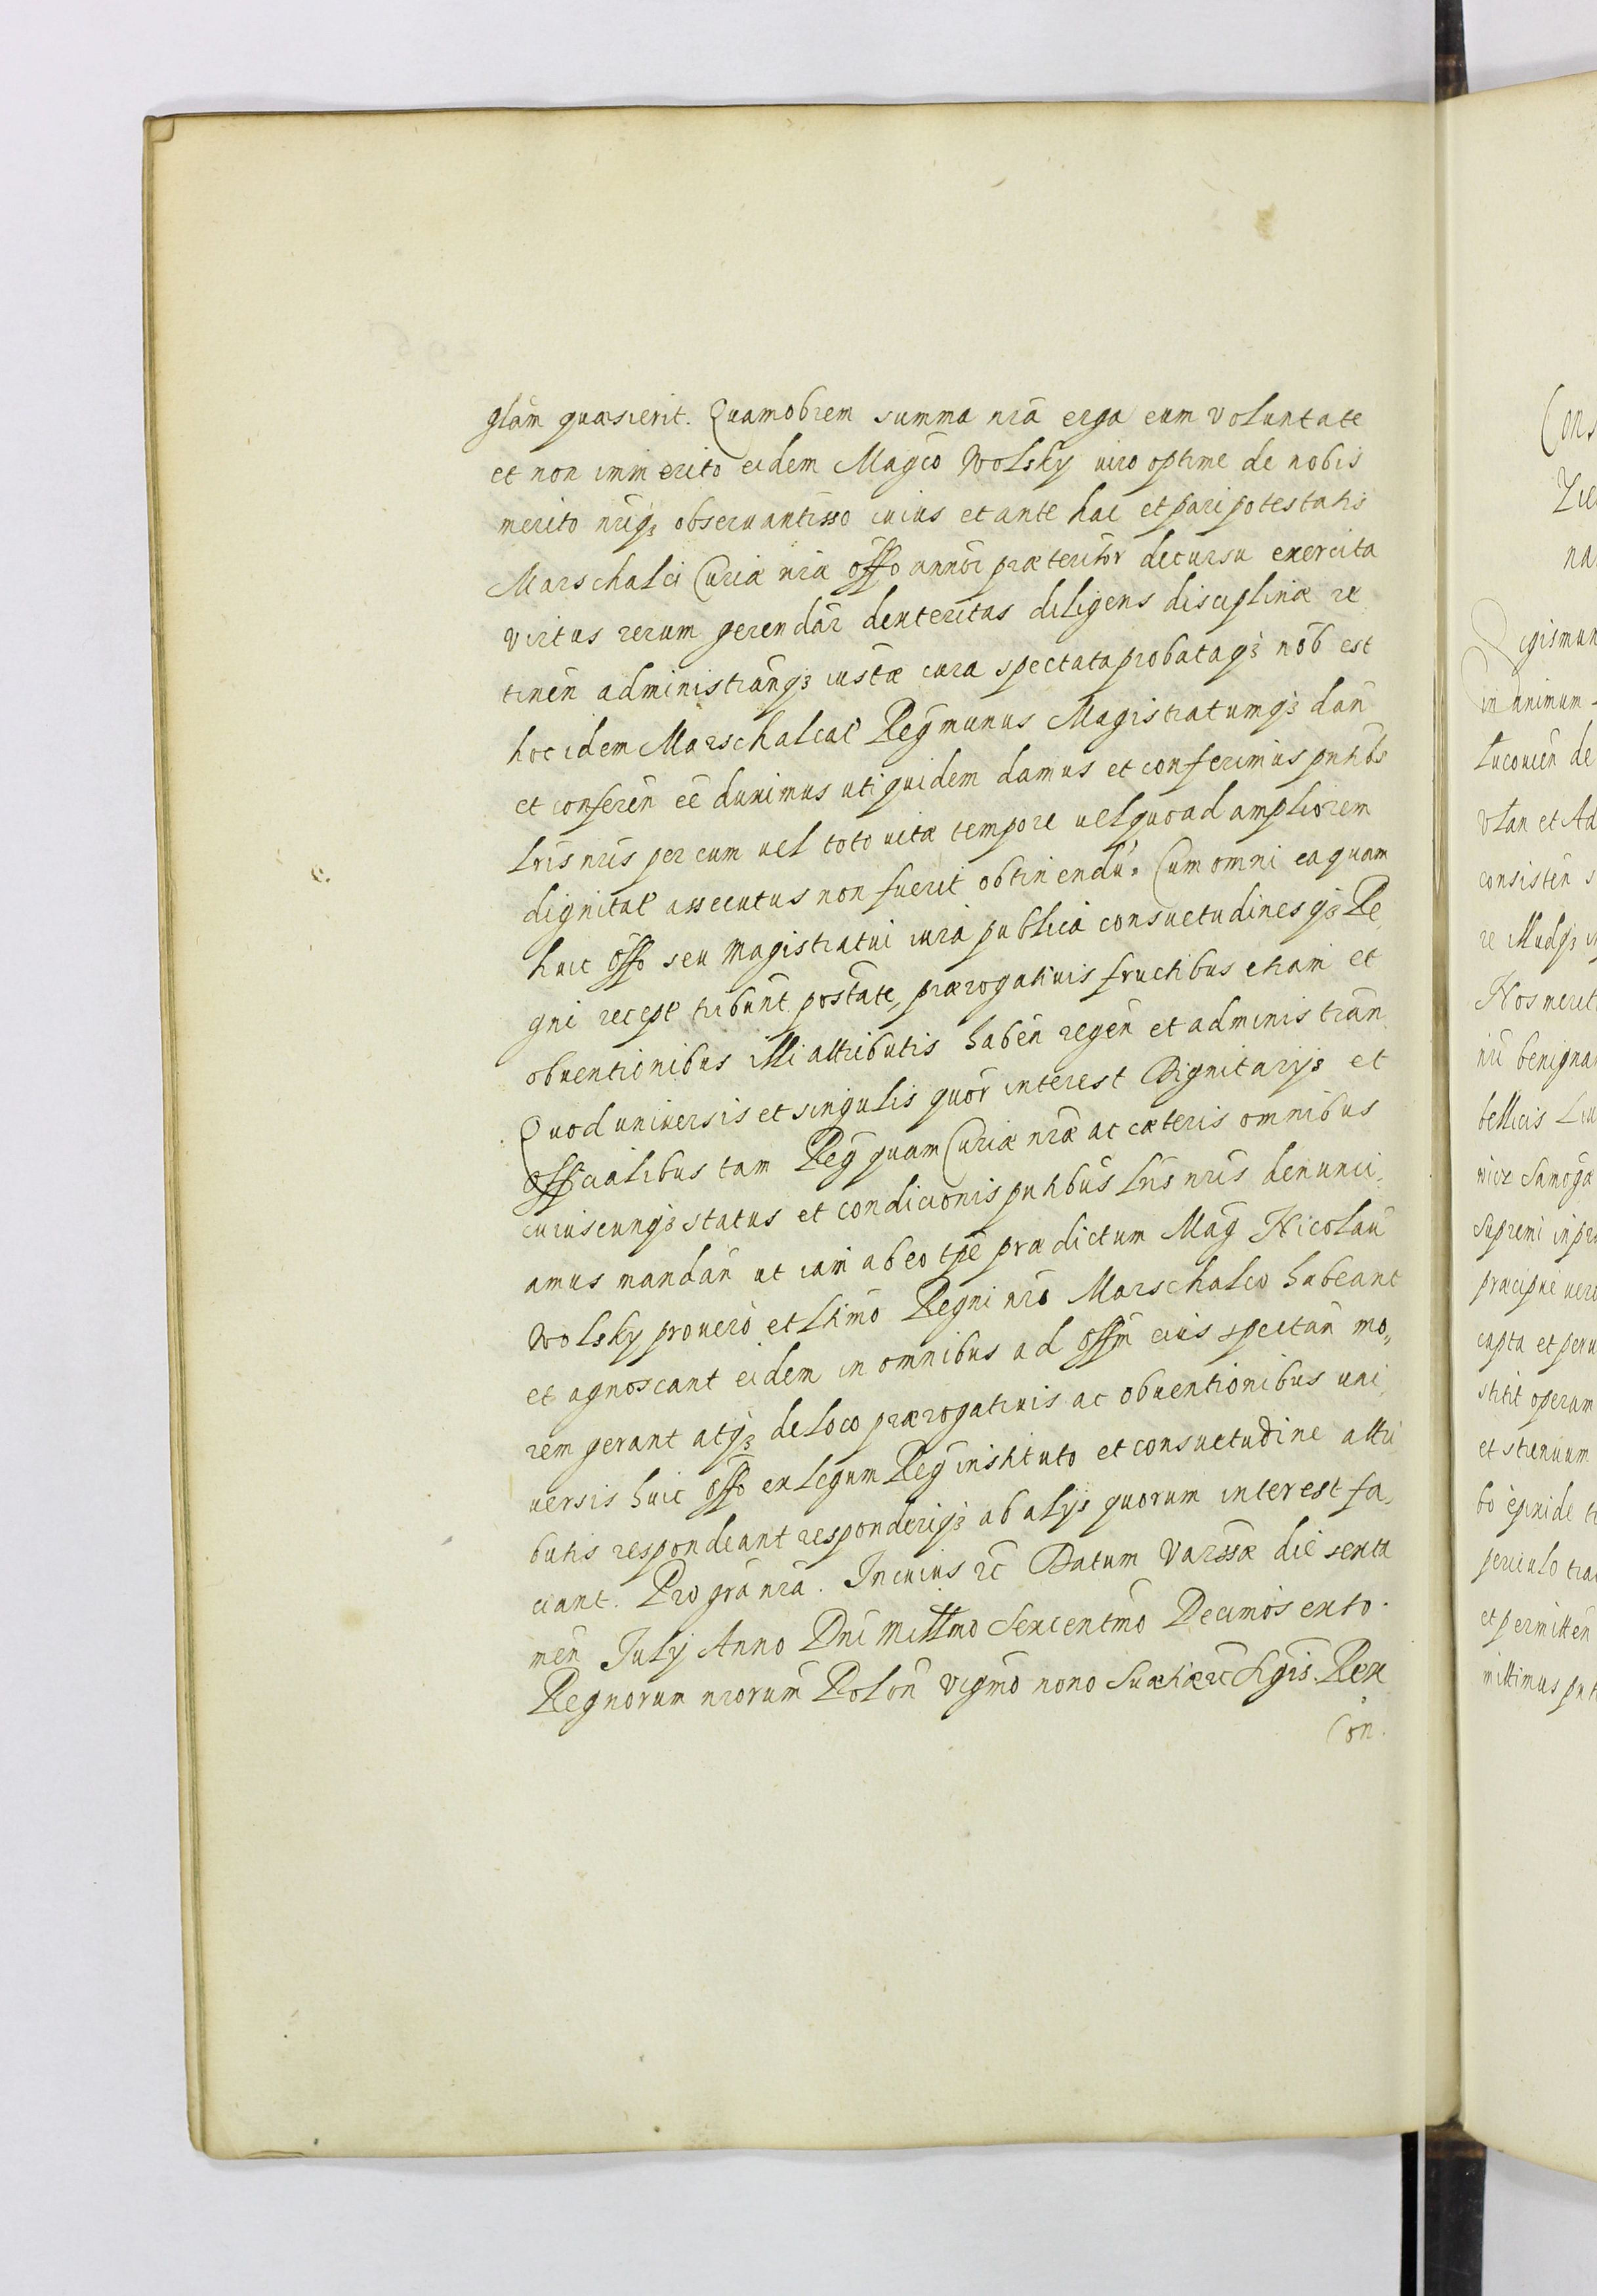 glam quæsierit. Quamobrem summa nra erga eum voluntate
et non immerito eidem Magco Wolsky viro optime de nobis
merito nrıq3 observantisso cuius et ante hac et pari potestatis
Marschalci Curiæ nræ offo annor præteritor decursu exercita
virtus rerum gerendar dexteritas diligens disciplinæ re
tinen administranq3 iustæ cura spectata probataq3 nob est
hoc idem Marschalcat Reg munus Magistratumq3 dan
et conferen ee duximus uti quidem damus et conferimus pntibs
Lris nris per eum vel toto vitæ tempore vel quoad ampliorem
dignitat assecutus non fuerit obtinendu. Cum omni ea quam
huic offo seu Magistratui iura publica consuetudinesq3 Re
gni recept tribunt postate, prærogativis fructibus etiam et
obventionibus illi attributis haben regen et administran
Quod universis et singulis quor interest Dignitarijs et
Officialibus tam Reg quam Curiæ nræ ac cæteris omnibus
cuiuscunq3 status et condicionis pntibus Lris nris denunci,
amus mandan ut iam ab eo tpe prædictum Mag Nicolau
Wolsky pro vero et Ltimo Regni nro Marschalco habeant
et agnoscant eidem in omnibus ad offm eius spectan mo,,
rem gerant atq3 de Loco prærogativis ac obventionibus uni,
versis huic offo ex legum Reg instituto et consuetudine attri
butis respondeant responderiq3 ab alijs quorum interest fa,
ciant. Pro gra nra. In cuius rc Datum Varssæ die sexta
men July Anno Dni Millmo Sexcentmo Decimosexto.
Regnorum nrorum Polon vigmo nono Suætiæ rc Sgis. Rex
Con.
Cons
Zie
na
Sigismun
in animum
Lucovien de
Vlan et Ad
consisten s
re illudq3
Nos merit
nri benigna
bellicis Liu
wicz Samoga
supremi in pr
præcipue vero
capta et peru
stitit operam
et strenuum
periculo tra
et permitten
mittimus pnt